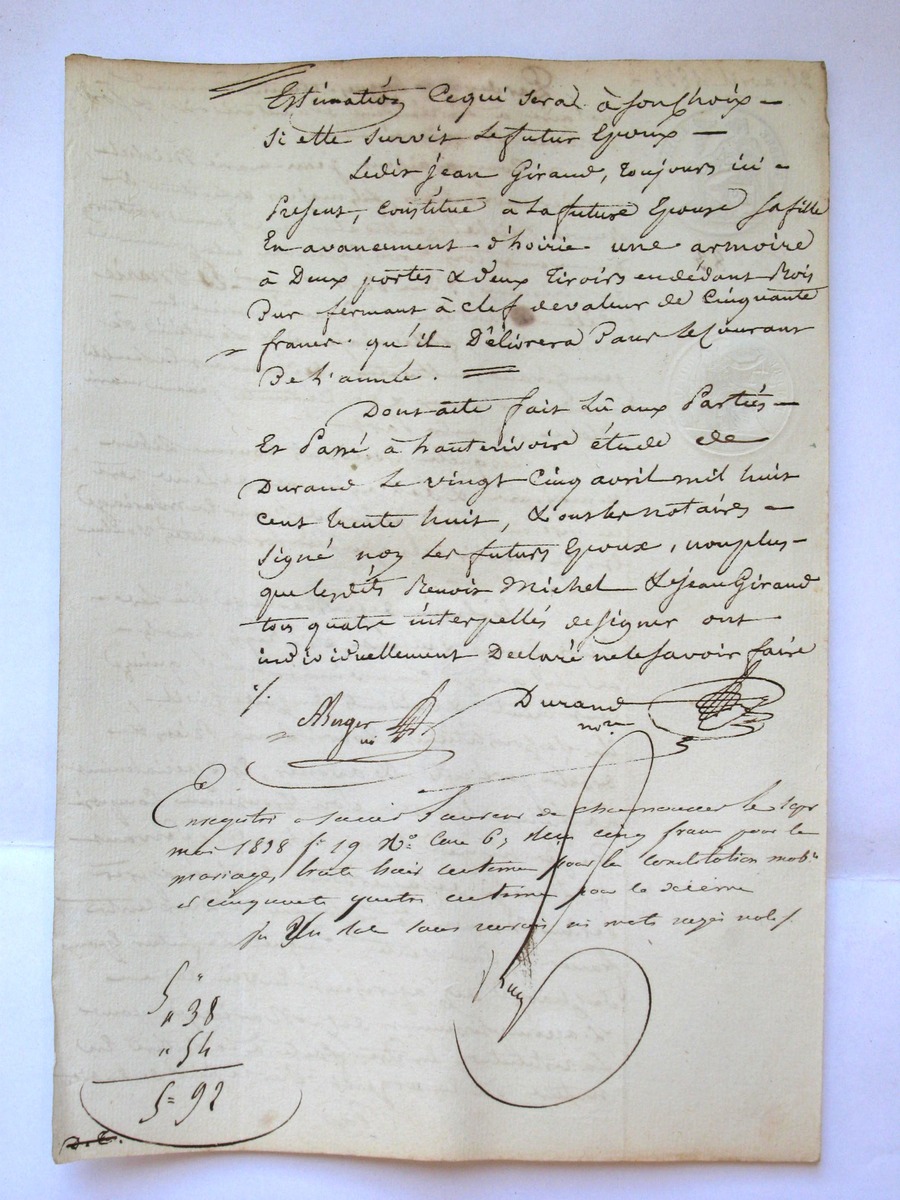 Estimation Ce qui sera à son Choix —
Si elle survit Le futur Epoux —
Ledit Jean Giraud, toujours ici —
Présent, constitue à La future Epouse sa fille
En avancement d'hoirie une armoire
à Deux portes & deux Tiroirs en dédant Bois
Dur fermant à clef de valeur de Cinquante
francs. qu'il Délivrera Dans Le Courant
De L'année. =
Dont acte fait Lû aux Parties —
Et Passé à hauterivoire étude de
Durand Le vingt Cinq avril mil huit
cent trente huit, & ont les notaires —
Signé non Les futurs Epoux, non plus —
que lesdits Benoit Michel & Jean Giraud
tous quatre interpellés de signer ont
individuellement Déclaré ne le savoir faire
./.
Durand
nore
Enregistré à Saint Laurent de chamousset le
mai 1838 fo 19 Vo Case 6, reçu cinq francs pour le
mariage, trente huit centimes pour la Constitution mobre
et cinquante quatre centimes pour le dixième
5 "
" 38
" 54
5 = 92
D.T.